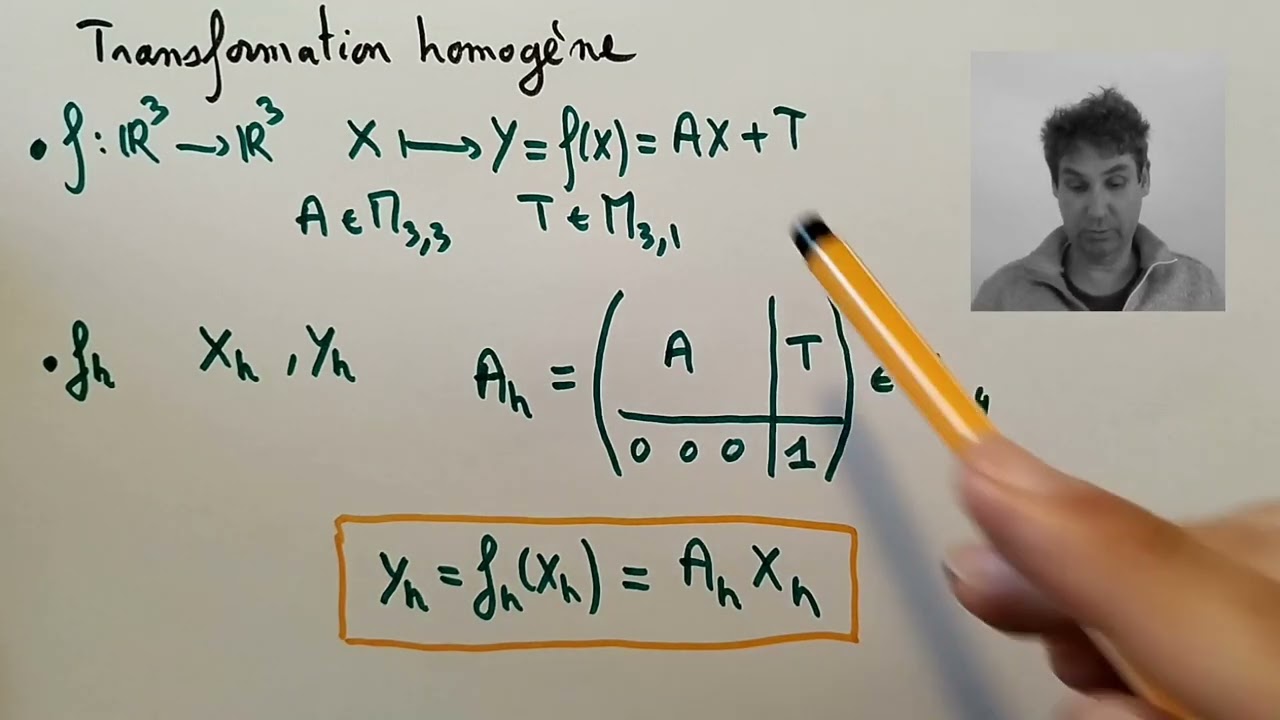 Transformation homogène
• f : ℝ³ → ℝ³ X ⟼ Y = f(X) = AX + T
A ∈ M₃,₃ T ∈ M₃,₁
• fₕ Xₕ , Yₕ Aₕ = ( A | T ) ∈
0 0 0 | 1
Yₕ = fₕ(Xₕ) = Aₕ Xₕ